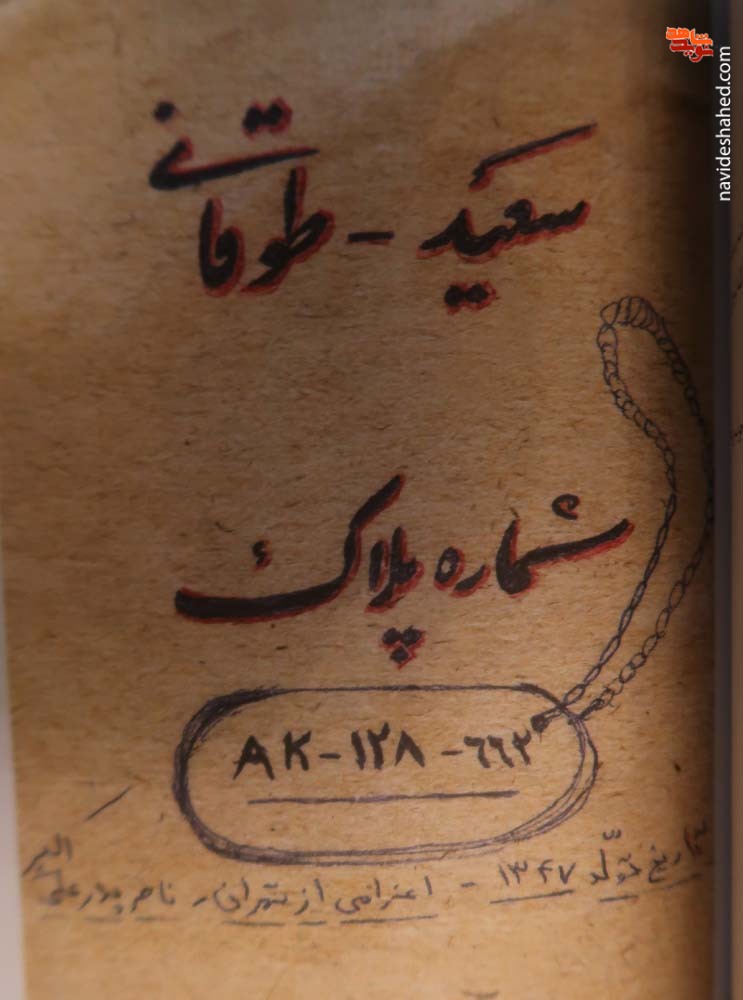 سعید - طوقانی
شماره پلاک
AK-۱۲۸-۶۶۲
تاریخ تولّد ۱۳۴۷ - اعزامی از تهران، نام پدر علی اکبر
navideshahed.com
نوید شاهد